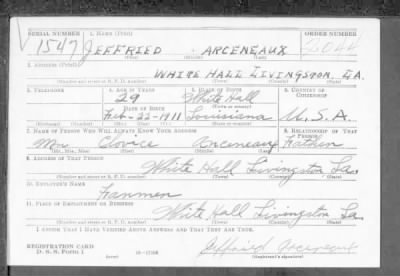 SERIAL NUMBER 1. NAME (Print) ORDER NUMBER
1547 JEFFRIED ARCENEAUX
(First) (Middle) (Last)
2. ADDRESS (Print)
WHITE HALL LIVINGSTON, LA.
(Number and street or R. F. D. number) (Town) (County) (State)
3. TELEPHONE 4. AGE IN YEARS 5. PLACE OF BIRTH 6. COUNTRY OF CITIZENSHIP
29 White Hall
(Town or county)
DATE OF BIRTH
Feb-22-1911 Louisiana U.S.A.
7. NAME OF PERSON WHO WILL ALWAYS KNOW YOUR ADDRESS 8. RELATIONSHIP OF THAT PERSON
Mr. Arceneaux Father
(Mr., Mrs., Miss) (First) (Middle) (Last)
9. ADDRESS OF THAT PERSON
White Hall Livingston La.
(Number and street or R. F. D. number) (Town) (County) (State)
10. EMPLOYER'S NAME
Farmer
11. PLACE OF EMPLOYMENT OR BUSINESS
White Hall Livingston La.
(Number and street or R. F. D. number) (Town) (County) (State)
I AFFIRM THAT I HAVE VERIFIED ABOVE ANSWERS AND THAT THEY ARE TRUE.
REGISTRATION CARD
D. S. S. Form 1 Jeffried Arceneaux
(over) (Registrant's signature)